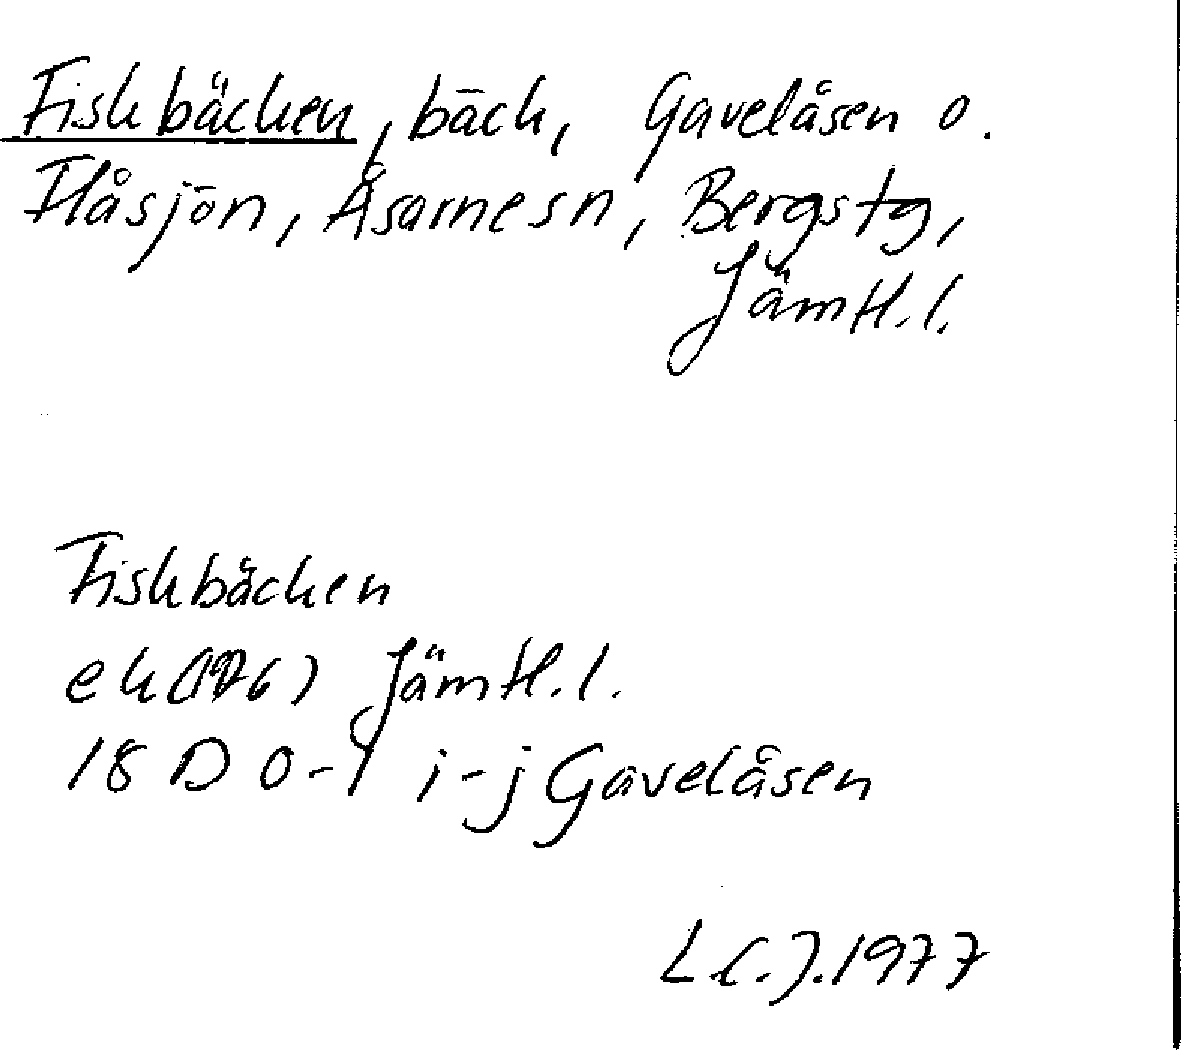 Fiskbäcken, bäck, Gavelåsen o.
Flåsjön, Åsarne sn, Bergs tg,
Jämtl. l.
Fiskbäcken
ek (176) Jämtl. l.
18 D 0-1 i-j Gavelåsen
L.C.J. 1977